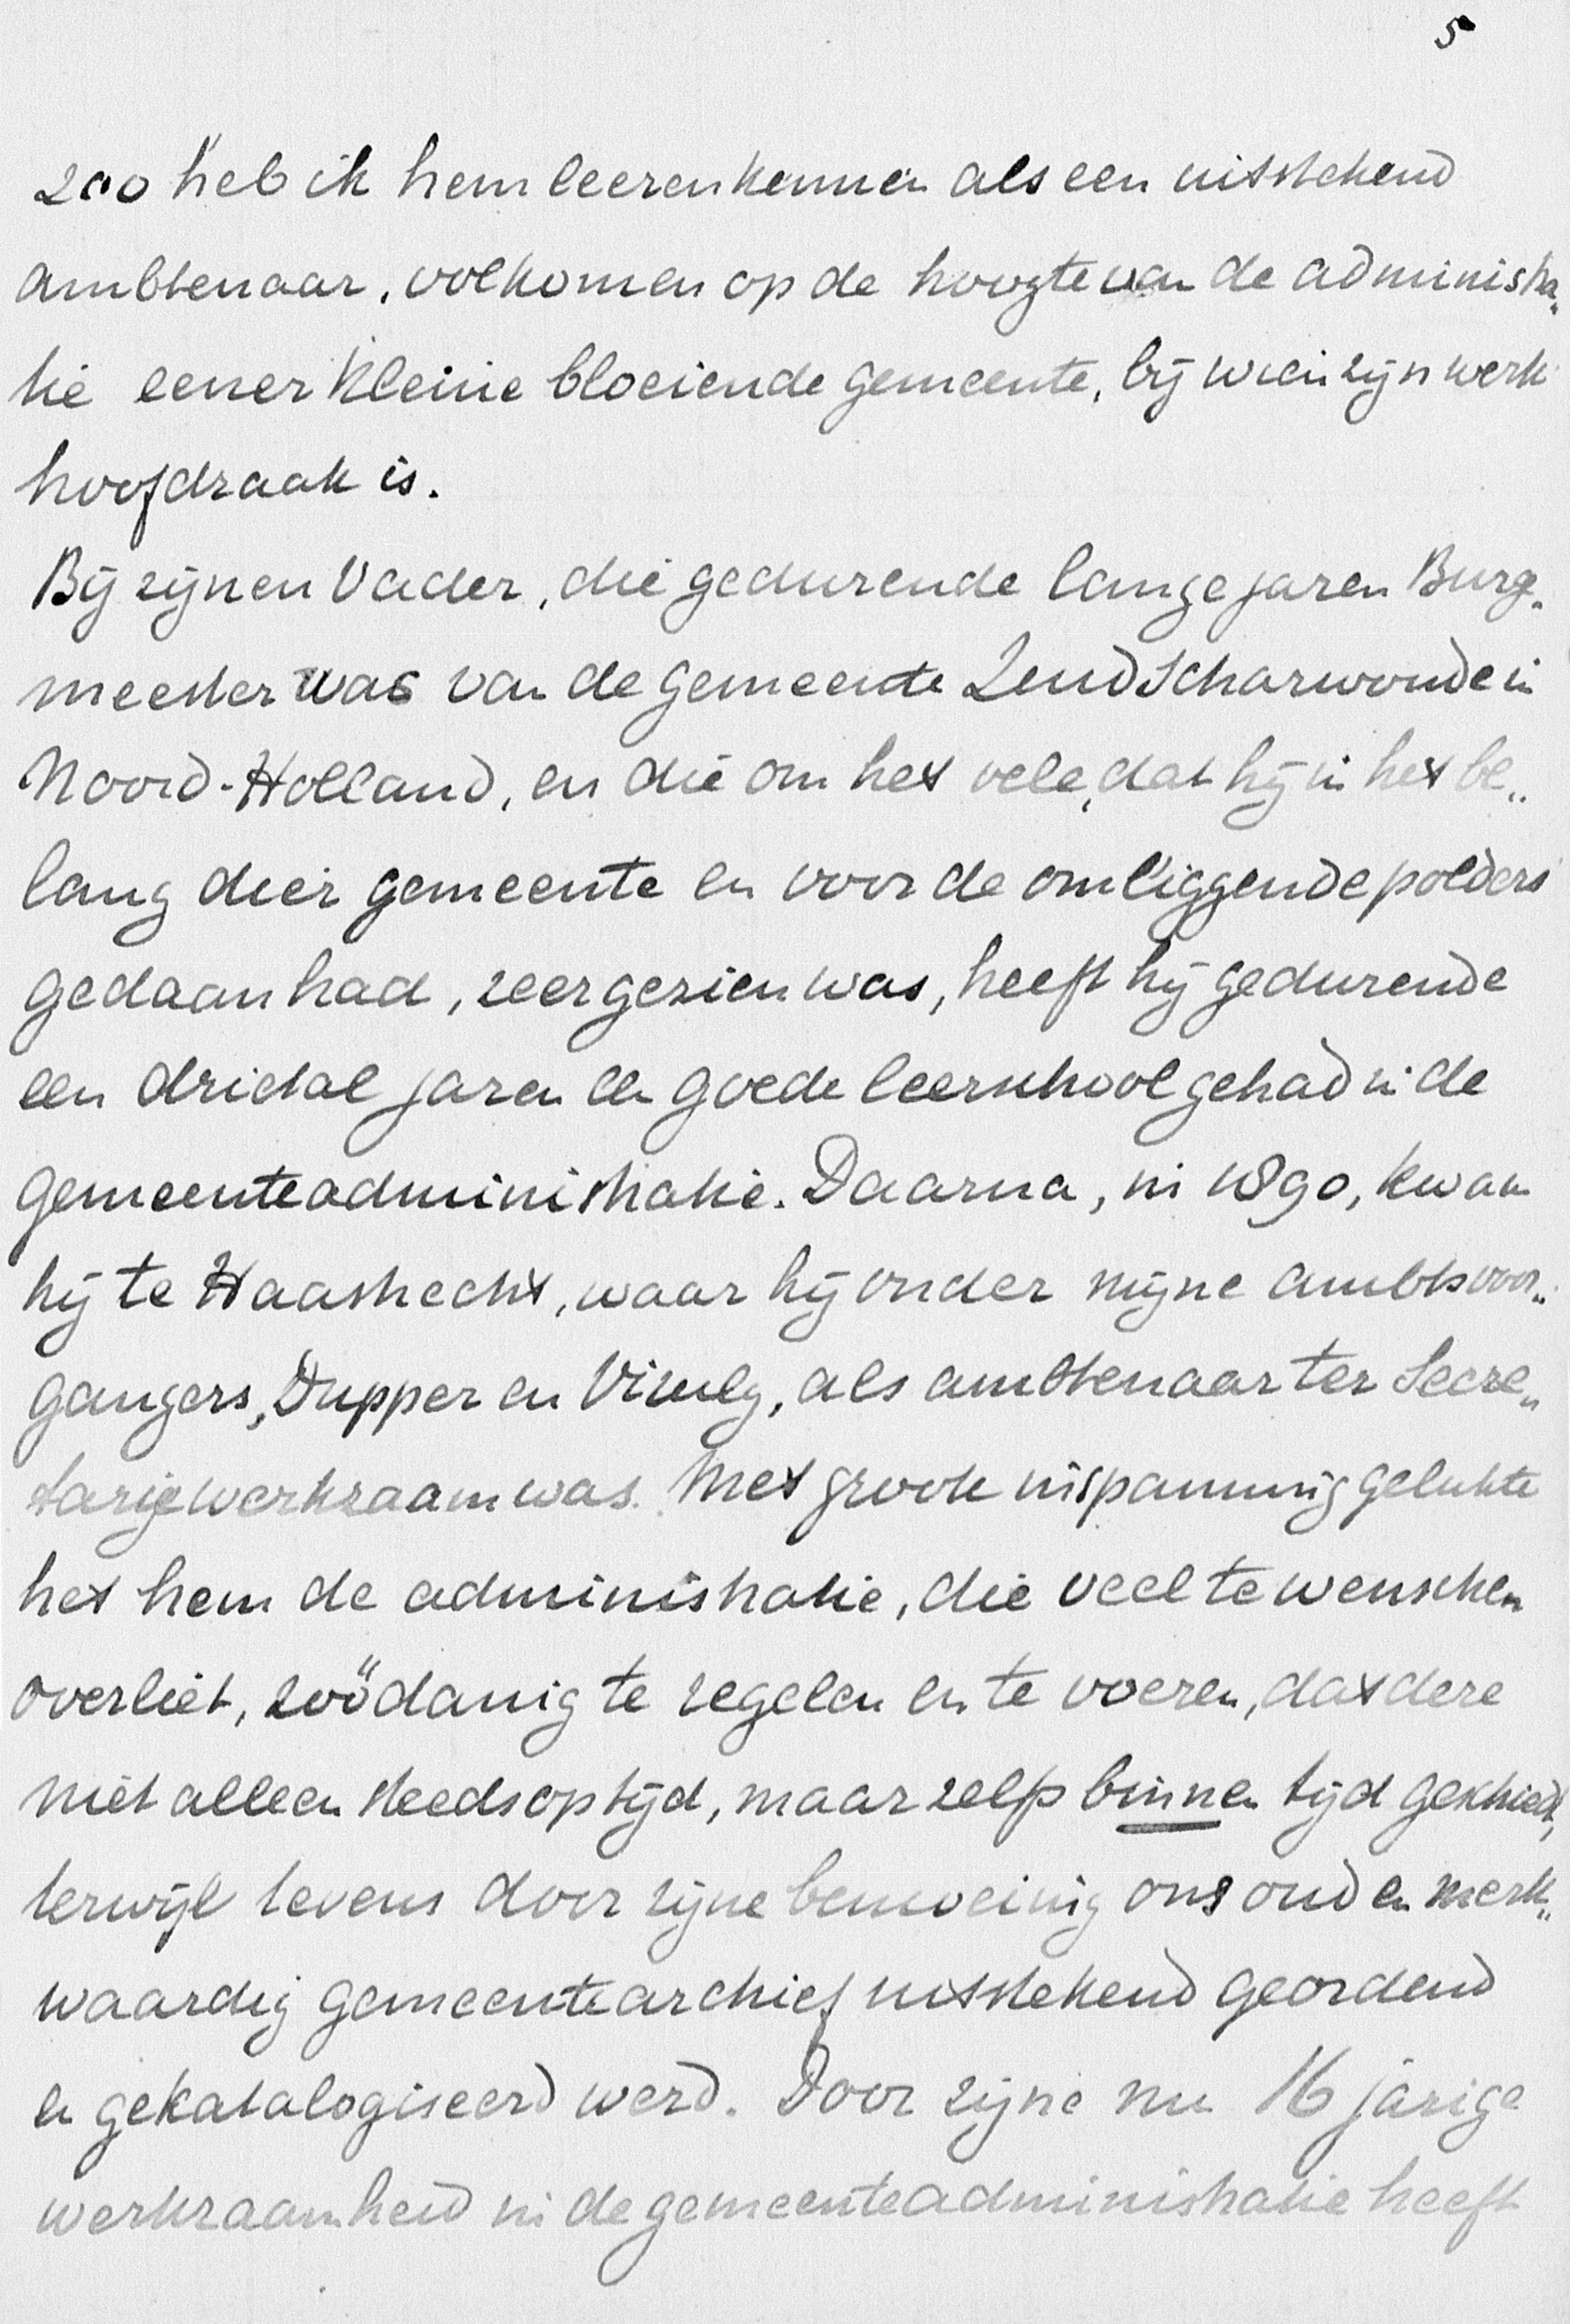 5
zoo heb ik hem leeren kennen als een uitstekend
ambtenaar, volkomen op de hoogte van de administra„
tie eener kleine bloeiende gemeente, bij wien zijn werk
hoofdzaak is.
Bij zijnen Vader, die gedurende lange jaren Burge„
meester was van de gemeente Zuid Scharwoude in
Noord-Holland, en die om het vele, dat hij in het be„
lang dier gemeente en voor de omliggende polders
gedaan had, zeer gezien was, heeft hij gedurende
een drietal jaren een goede leerschool gehad in de
gemeenteadministratie. Daarna, in 1890, kwam
hij te Haastrecht, waar hij onder mijne ambtsvoor„
gangers, Dupper en, als ambtenaar ter Secre„
tarie werkzaam was. Met groote inspanning gelukte
het hem de administratie, die veel te wenschen
overliet, zoödanig te regelen en te voeren, dat deze
niet alleen steeds op tijd, maar zelfs binnen tijd geschiedt,
terwijl tevens door zijne bemoeiing ons oud en merk„
waardig gemeentearchief uitstekend geordend
en gekatalogiseerd werd. Door zijne nu 16 jarige
werkzaamheid in de gemeenteadministratie heeft